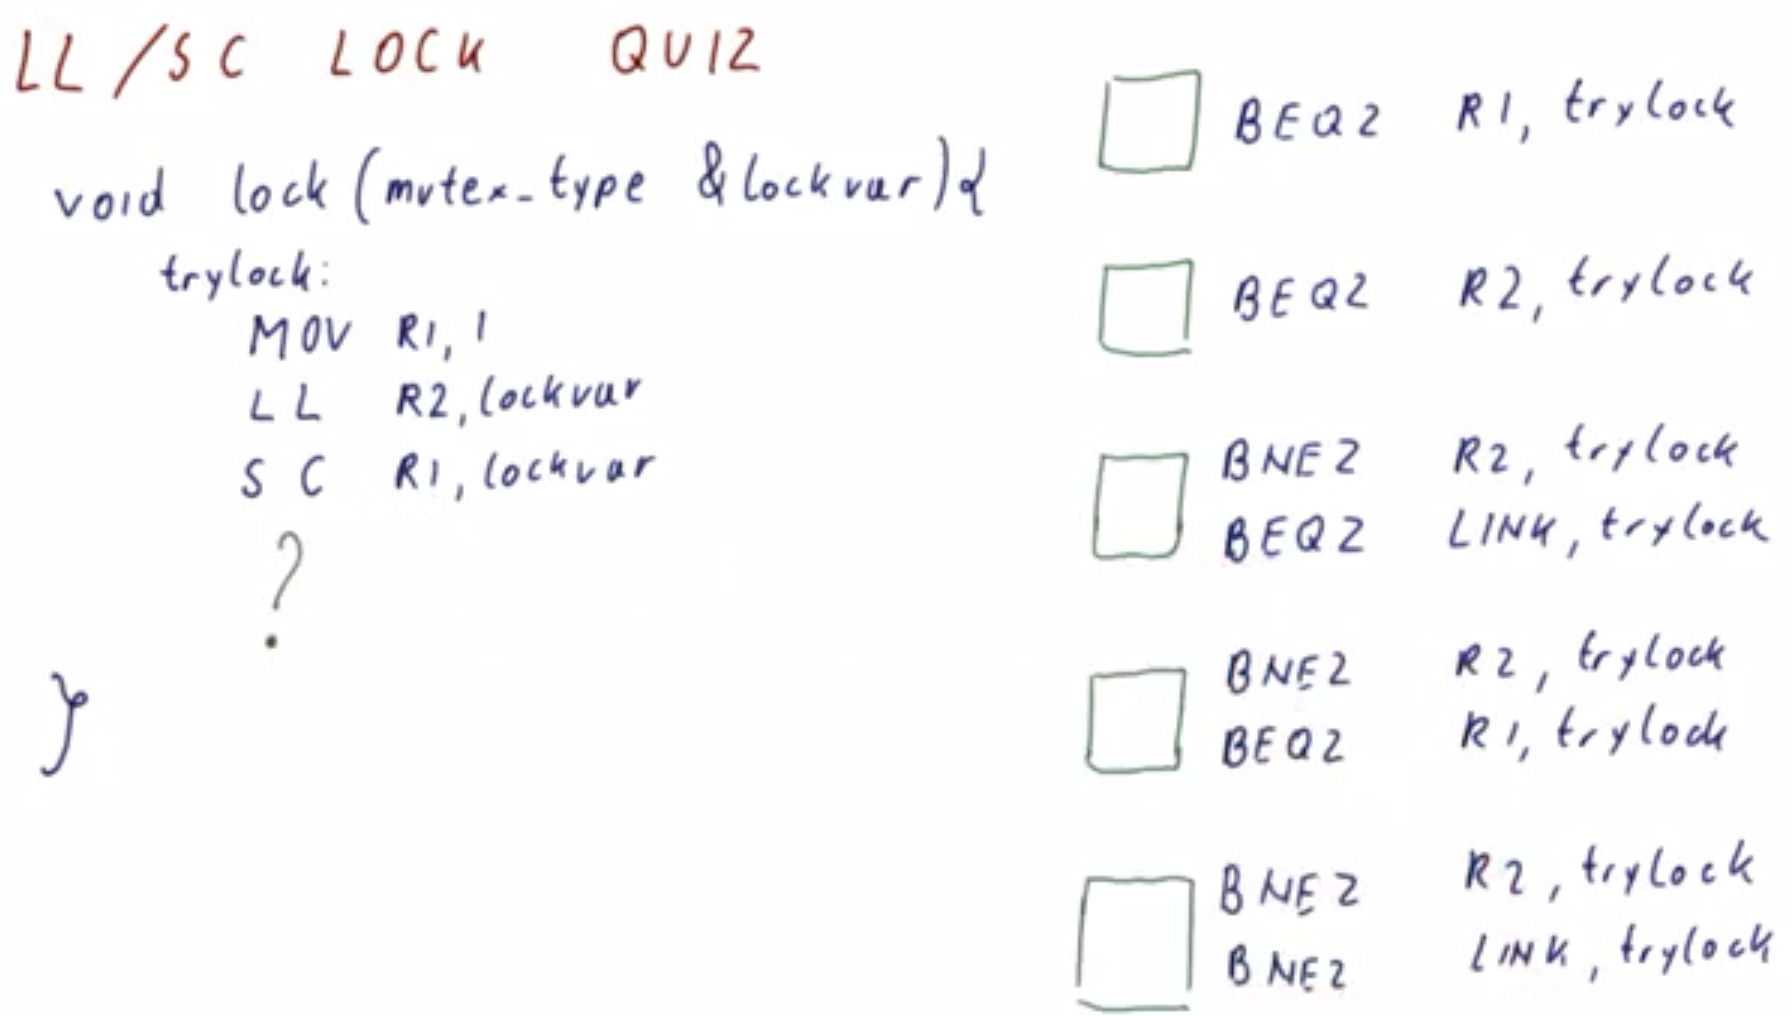 LL/SC LOCK QUIZ
void lock(mutex_type &lockvar){
trylock:
MOV R1, 1
LL R2, lockvar
SC R1, lockvar
?
}
BEQZ R1, trylock
BEQZ R2, trylock
BNEZ R2, trylock
BEQZ LINK, trylock
BNEZ R2, trylock
BEQZ R1, trylock
BNEZ R2, trylock
BNEZ LINK, trylock